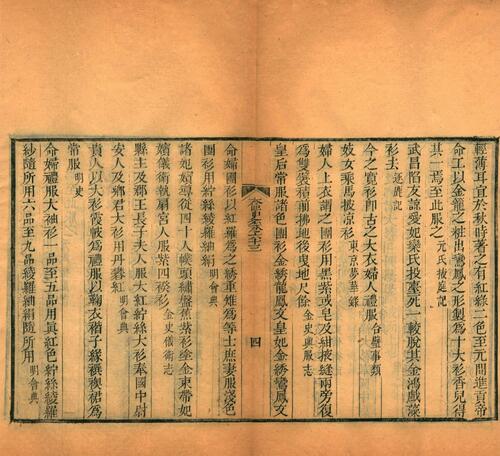 輕薄耳宜於秋時著之有紅綠二色至元間進貢帝
命工以金籠之粧出鸞鳳之形製爲十大衫香兒得
其一焉至此服之元氏掖庭記
武昌陷友諒愛妃桑氏投臺死一軟脫其金鴻戲藻
衫去
今之寬衫卽古之大衣婦人禮服合璧事類
妓女乘馬披凉衫東京夢華錄
婦人上衣謂之團衫用黑紫或皂及紺披縫兩旁復
爲雙襞積前拂地後曳地尺餘金史輿服志
皇后常服諸色團衫金綉龍鳳文皇妃金綉鸞鳳文
四
命婦團衫以紅羅爲之綉重雉爲等士庶妻服淺色
團衫用紵絲綾羅紬絹明會典
諸妃嬪導從四十人幞頭繡盤蕉紫衫塗金束帶妃
嬪儀衛執扇宮人服紫四䙆衫金史儀衛志
縣主及郡王長子夫人服大紅紵絲大衫奉國中尉
安人及鄉君大衫用丹礬紅明會典
貴人以大衫霞帔爲禮服以鞠衣褙子緣襈襖裙爲
常服明史
命婦禮服大袖衫一品至五品用眞紅色紵絲綾羅
紗隨所用六品至九品綾羅紬絹隨所用明會典